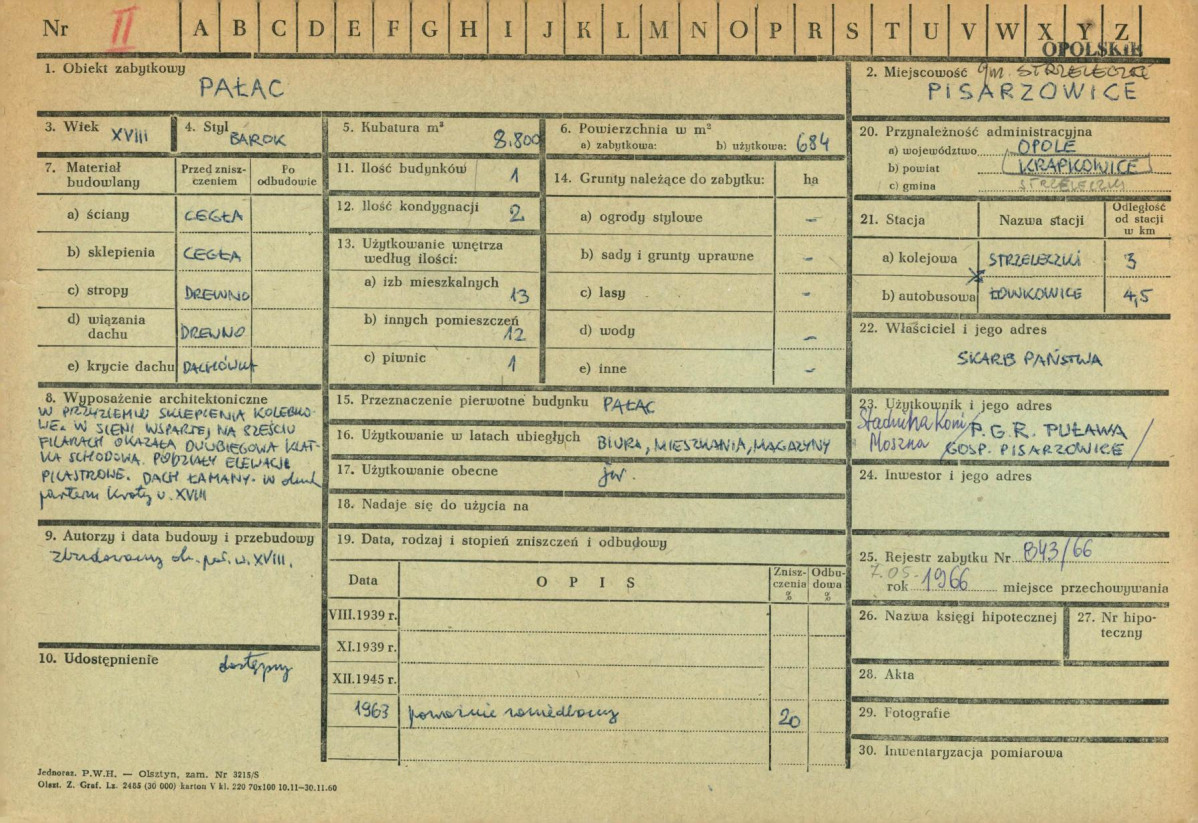 Nr II A B C D E F G H I J K L M N O P R S T U V W X Y Z
OPOLSKIE
1. Obiekt zabytkowy
PAŁAC
2. Miejscowość gm. STRZELECZKI
PISARZOWICE
3. Wiek XVIII
4. Styl BAROK
5. Kubatura m³ 8.800
6. Powierzchnia w m²
a) zabytkowa: b) użytkowa: 684
7. Materiał budowlany
Przed zniszczeniem
Po odbudowie
a) ściany CEGŁA
b) sklepienia CEGŁA
c) stropy DREWNO
d) wiązania dachu DREWNO
e) krycie dachu DACHÓWKA
8. Wyposażenie architektoniczne
W PRZYZIEMIU SKLEPIENIA KOLEBKO-
WE. W SIENI WSPARTEJ NA SZEŚCIU
FILARACH OKAZAŁA DWUBIEGOWA KLAT-
KA SCHODOWA. PODZIAŁY ELEWACJI
PILASTROWE. DACH ŁAMANY. W oknach
parteru kraty w. XVIII
9. Autorzy i data budowy i przebudowy
zbudowany ok. poł. w. XVIII.
10. Udostępnienie dostępny
11. Ilość budynków 1
12. Ilość kondygnacji 2
13. Użytkowanie wnętrza
według ilości:
a) izb mieszkalnych 13
b) innych pomieszczeń 12
c) piwnic 1
14. Grunty należące do zabytku: ha
a) ogrody stylowe –
b) sady i grunty uprawne –
c) lasy –
d) wody –
e) inne –
15. Przeznaczenie pierwotne budynku PAŁAC
16. Użytkowanie w latach ubiegłych BIURA, MIESZKANIA, MAGAZYNY
17. Użytkowanie obecne jw.
18. Nadaje się do użycia na
19. Data, rodzaj i stopień zniszczeń i odbudowy
Data OPIS Zniszczenia % Odbudowa %
VIII.1939 r.
XI.1939 r.
XII.1945 r.
1963 poważnie zaniedbany 20
20. Przynależność administracyjna
a) województwo OPOLE
b) powiat KRAPKOWICE
c) gmina STRZELECZKI
21. Stacja Nazwa stacji Odległość od stacji w km
a) kolejowa STRZELECZKI 3
b) autobusowa ŁOWKOWICE 4,5
22. Właściciel i jego adres
SKARB PAŃSTWA
23. Użytkownik i jego adres
Stadnina Koni
Moszna
P.G.R. PUŁAWA
GOSP. PISARZOWICE
24. Inwestor i jego adres
25. Rejestr zabytku Nr 843/66
7.05. rok 1966 miejsce przechowywania
26. Nazwa księgi hipotecznej
27. Nr hipoteczny
28. Akta
29. Fotografie
30. Inwentaryzacja pomiarowa
Jednoraz. P.W.H. — Olsztyn, zam. Nr 3215/S
Olszt. Z. Graf. Lz. 2485 (30 000) karton V kl. 220 70x100 10.11—30.11.60